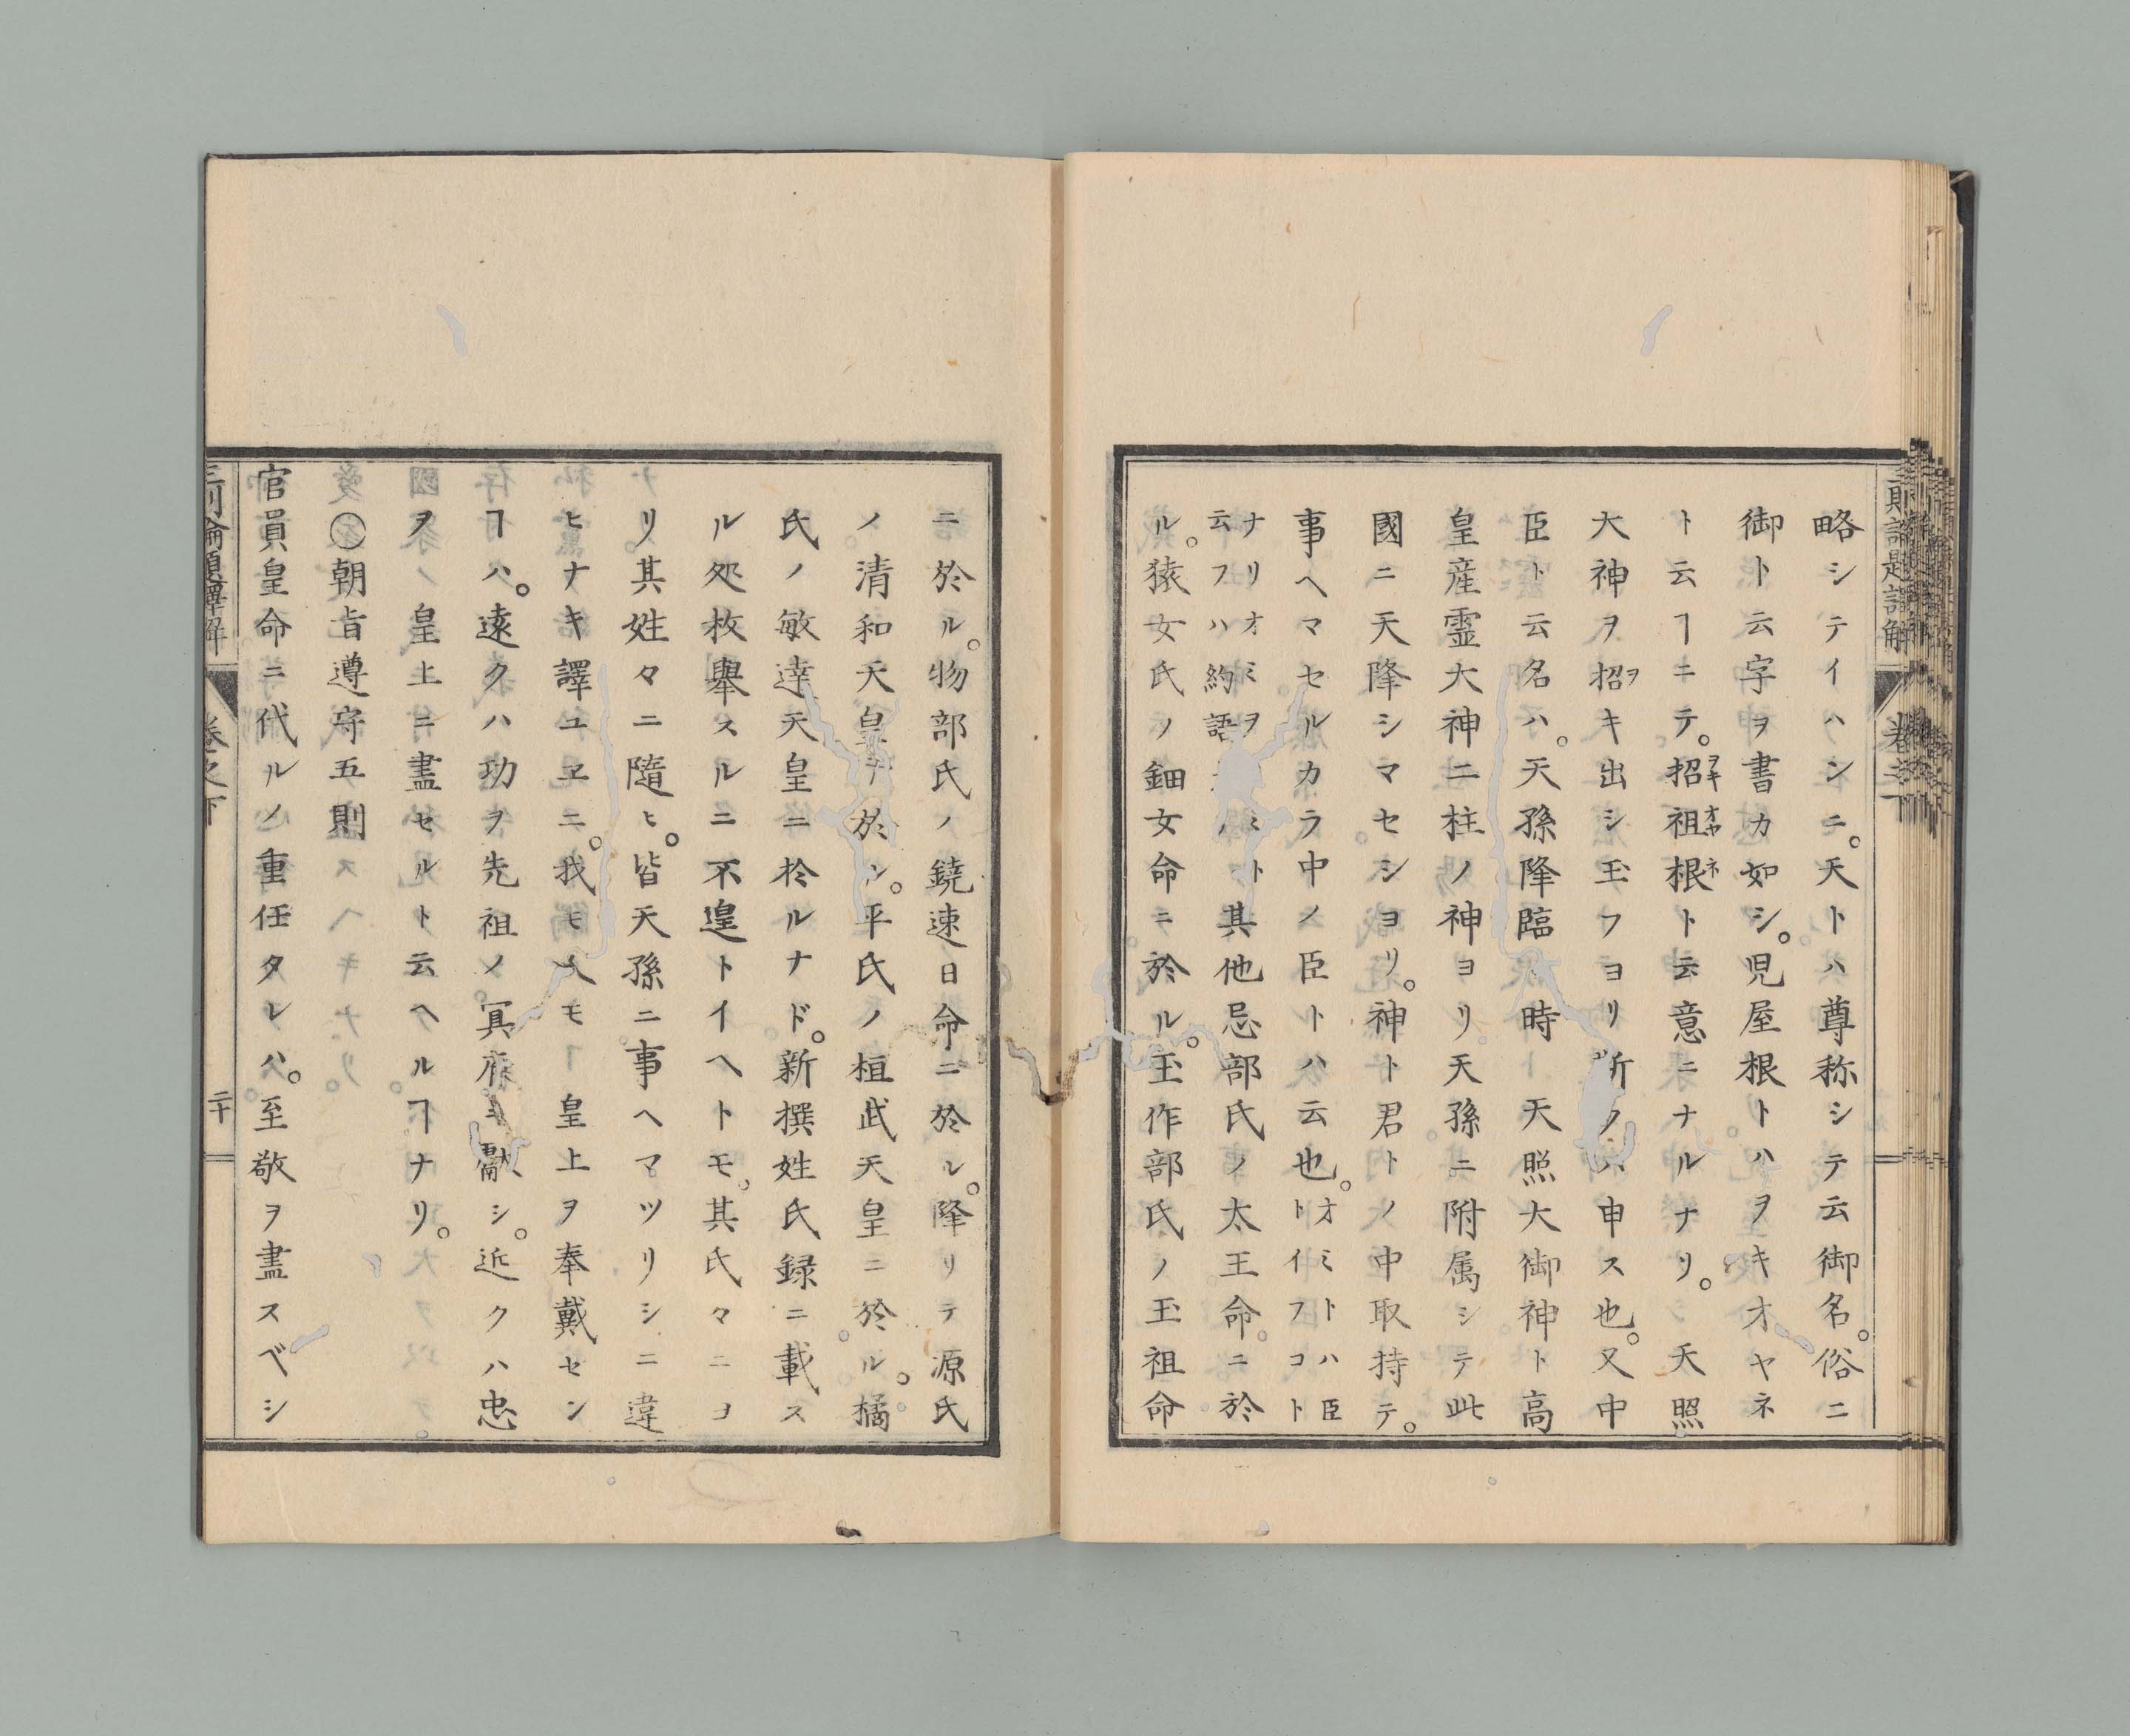 略シテイハンニ。天トハ尊称シテ云御名。俗ニ
御ト云字ヲ書カ如シ。児屋根トハヲキオヤネ
ト云ヿニテ。招祖根ト云意ニナルナリ。天照
ヲキオヤネ
大神ヲ招キ出シ玉フヨリ申ス也。又中
ヲ
臣ト云名ハ。天孫降臨時天照大御神ト高
皇産霊大神二柱ノ神ヨリ天孫ニ附属シテ此
國ニ天降シマセショリ。神ト君トノ中取持テ。
事ヘマセルカラ中ノ臣トハ云也。
オミトハ臣
トイフコト
ナリオミヲ ミト
云フハ約語
其他忌部氏ノ太王命ニ於
ル。猿女氏ノ鈿女命ニ於ル。玉作部氏ノ玉祖命
ニ於ル。物部氏ノ鐃速日命ニ於ル。降リテ源氏
ノ清和天皇ニ於ル。平氏ノ桓武天皇ニ於ル。橘
氏ノ敏達天皇ニ於ルナド。新撰姓氏録ニ載ス
ル処枚舉スルニ不遑トイヘトモ。其氏々ニヨ
リ其姓々ニ隨ヒ。皆天孫ニ事ヘマツリシニ違
ヒナキ譯ユヱニ。我モ人モ皇上ヲ奉戴セン
ヿハ。遠クハ功ヲ先祖ノ冥府ニ獻シ。近クハ忠
ヲ皇上ニ盡セルト云ヘルヿナリ。
〇朝旨遵守五則
官員皇命ニ代ルノ重任タレハ。至敬ヲ盡スベシ
巻之下
二十